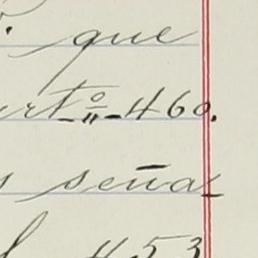 que
art.º 460.
s seña-
453